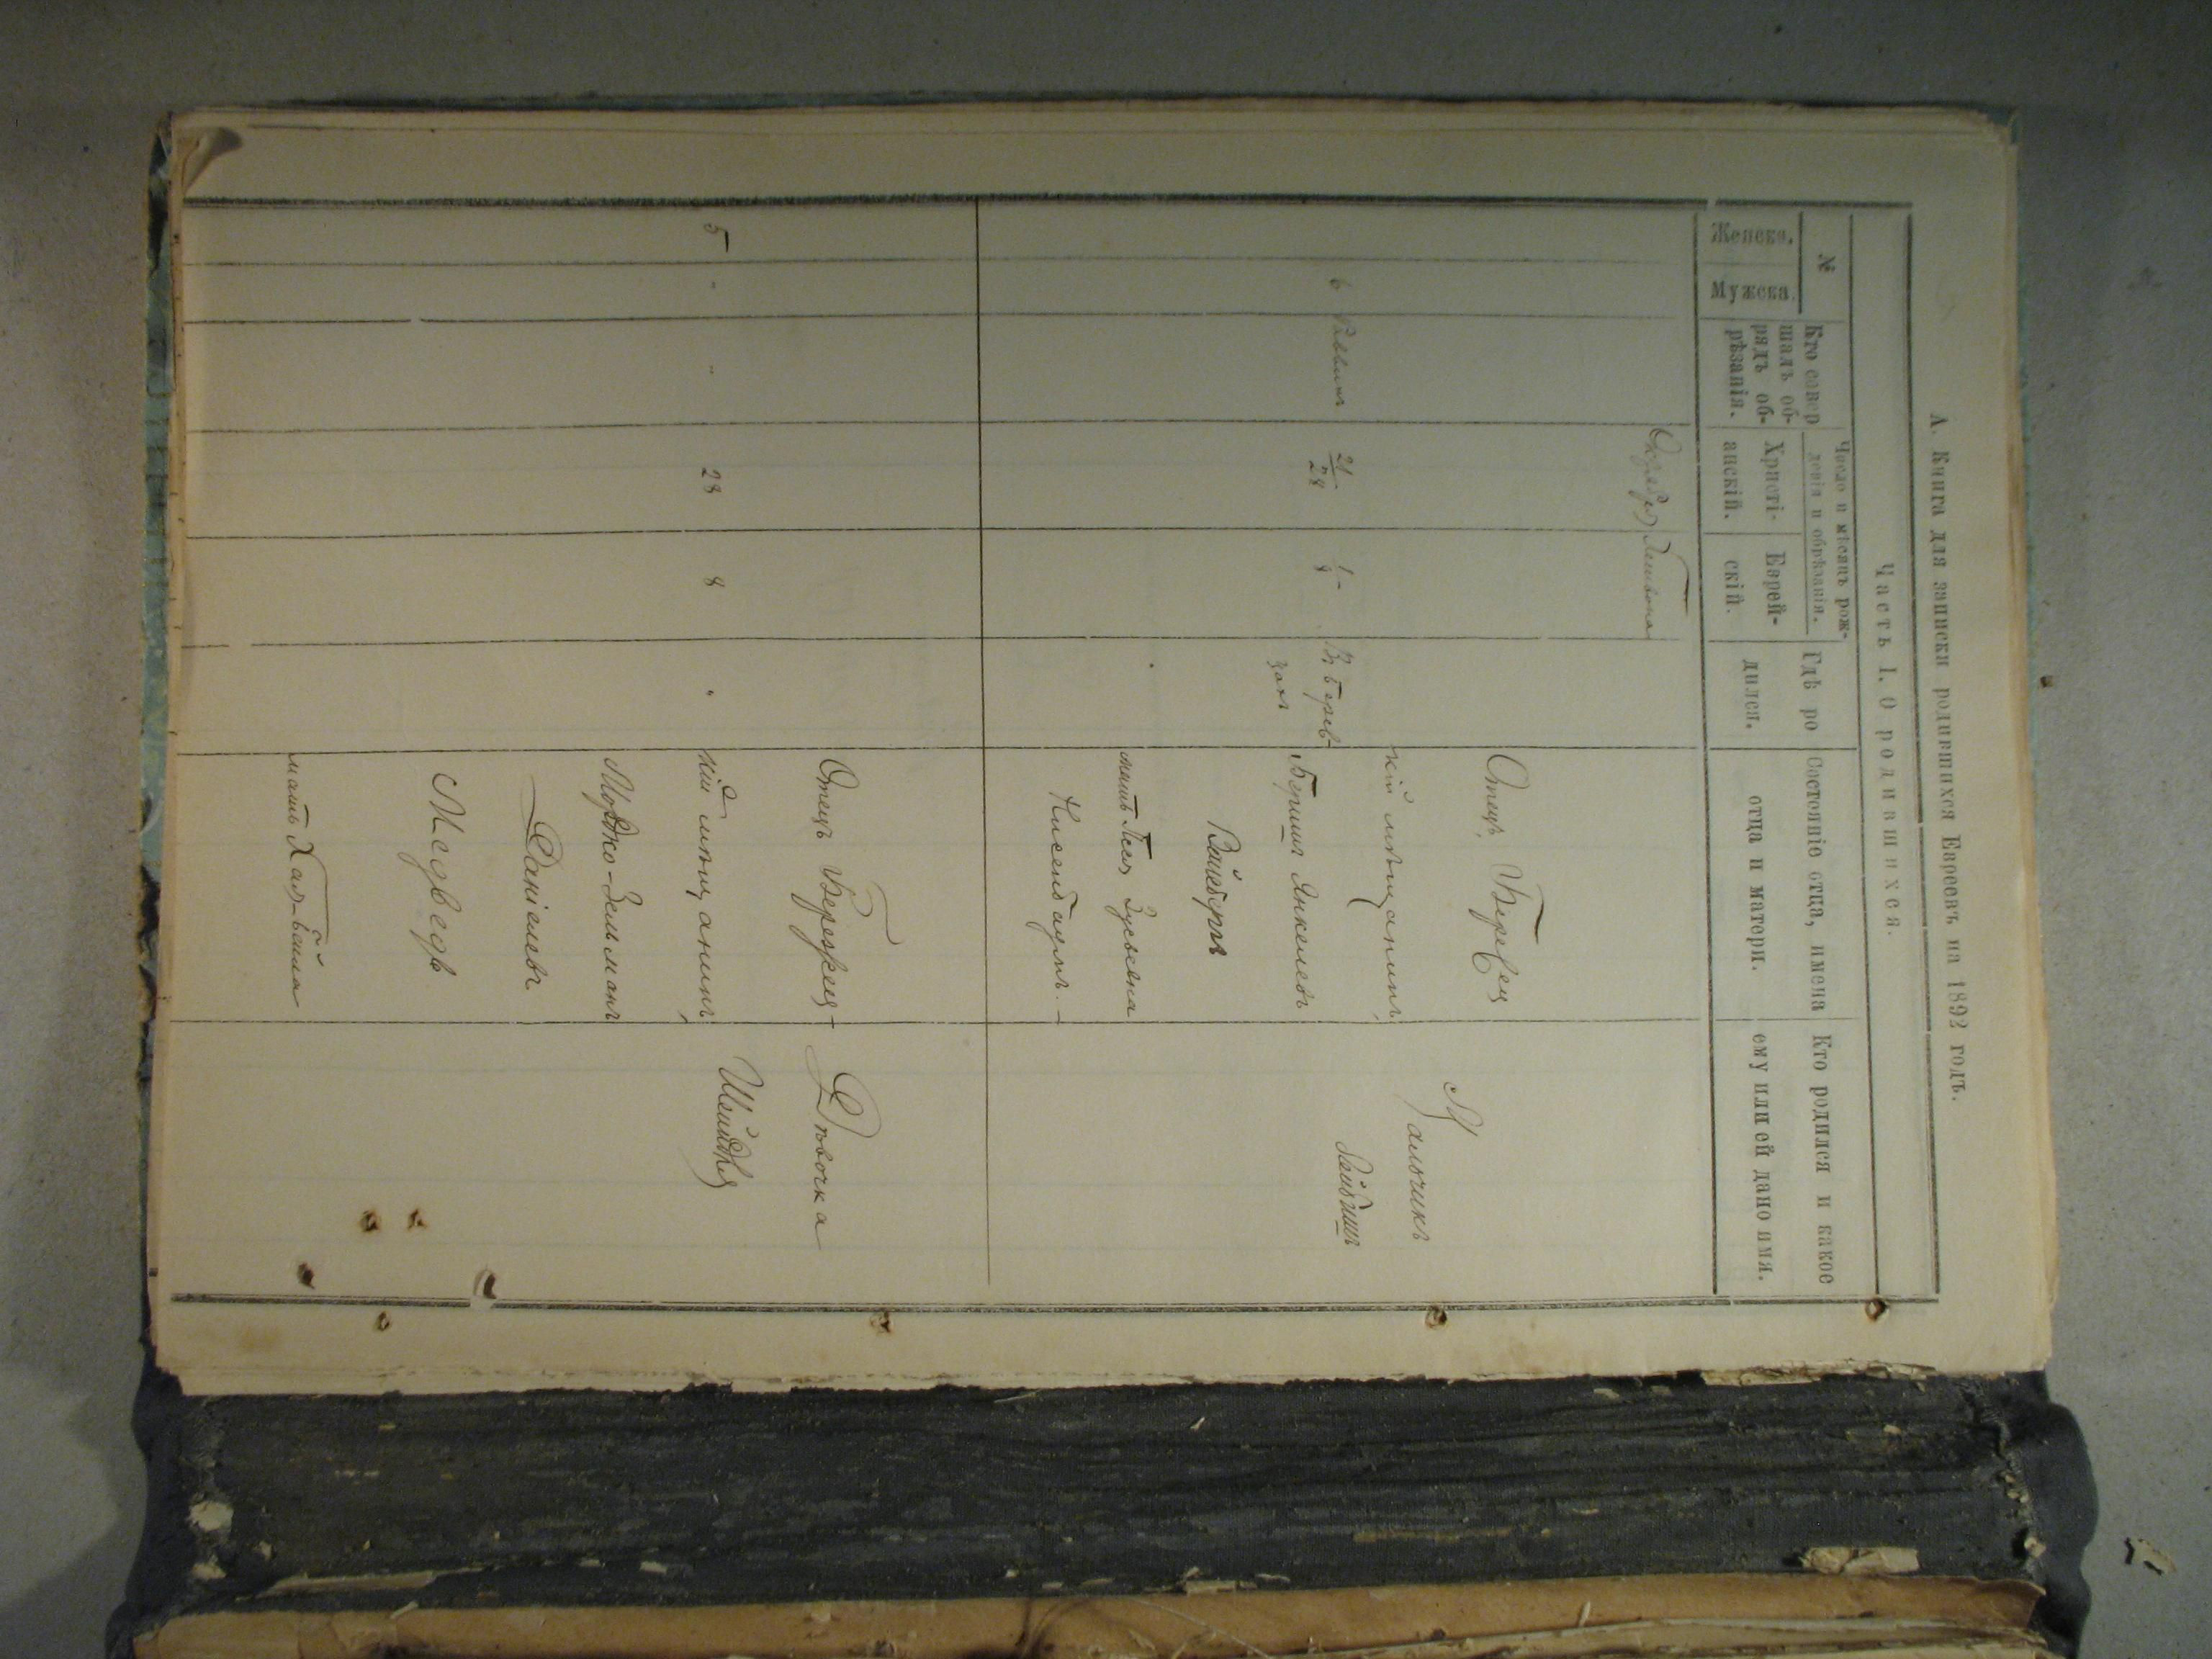 А. Книга для записки родившихся Евреевъ на 1892 годъ.
Часть I. О родившихся.
№
Женска.
Мужска.
Кто совер
шалъ об-
рядъ об-
рѣзанія.
Число и мѣсяцъ рож-
денія и обрѣзанія.
Христі-
анскій.
Еврей-
скій.
Гдѣ ро
дился.
Состояніе отца, имена
отца и матери.
Кто родился и какое
ему или ей дано имя.
6
Раввинъ
21/28
1/8
Въ Берез-
Отецъ, Берез
кій мѣщанинъ,
Беришъ Янкелевъ
Вайсбергъ
мать Песя Зусьевна
Нисенбаумъ
Мальчикъ
Лейбишъ
5
"
"
28
8
"
Отецъ Березнец-
кій мѣщанинъ,
Мордко-Зельманъ
Даніелевъ
Медведь
мать Хая-Бейла
Дѣвочка
Шейндля